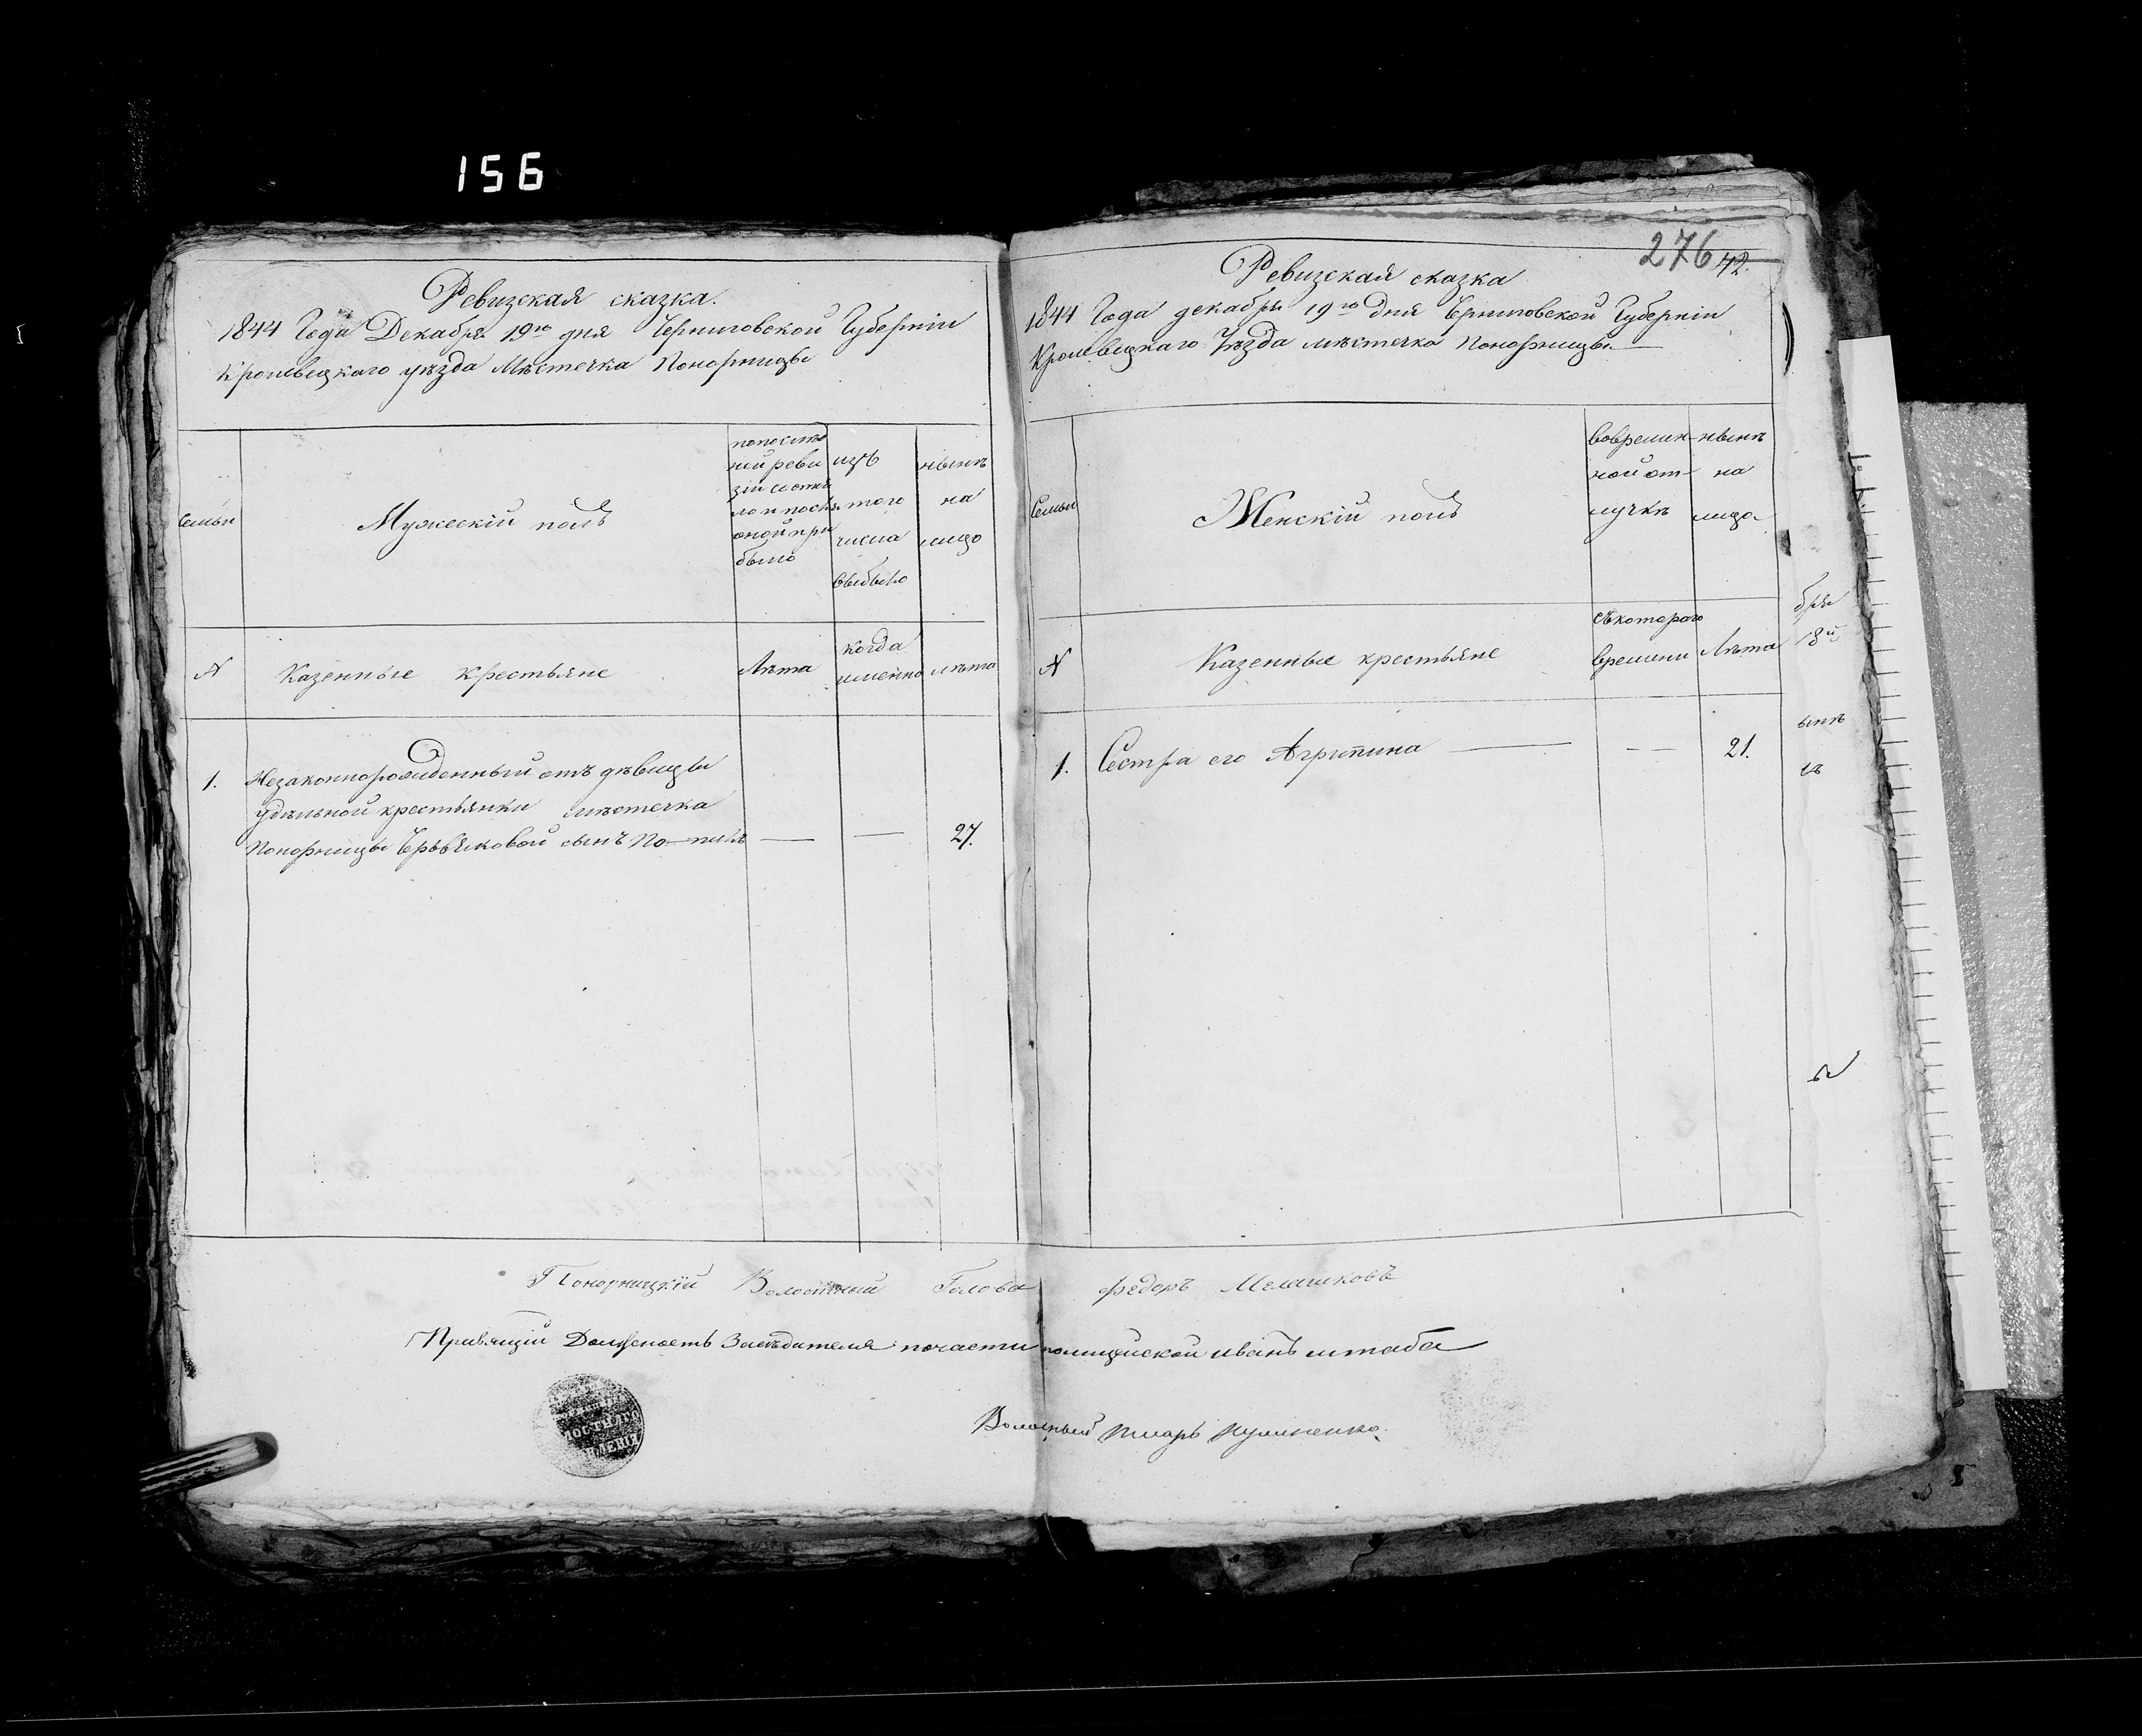 156
Ревизская сказка.
1844 Года Декабря 19го дня Черниговской Губерніи
Кролевецкаго уѣзда Мѣстечка Понорницы
Семьи
Мужескій полъ
попослѣд
ней реви
зіи состоя
ло и послѣ
оной при
было
изъ
того
числа
выбыло
нынѣ
на
лицо
N
Казенные крестьяне
Лѣта
когда
именно
лѣта
1.
Незаконнорожденный отъ дѣвицы
удѣльной крестьянки мѣстечка
Понорницы сынъ
27.
276 42.
Ревизская сказка
1844 Года декабря 19го дня Черниговской Губерніи
Кролевецкаго Уѣзда мѣстечка Понорницы
Семьи
Женскій полъ
вовремен
ной от-
лучкѣ
нынѣ
на
лицо
N
Казенные крестьяне
съкотораго
времени
Лѣта
1. Сестра его Агрипина
21.
бря
18й
ынѣ
Понорницкій Волостный Голова Федоръ
Правящій Должность Засѣдателя почасти полицейской иванъ штаба
Волосный Писарь